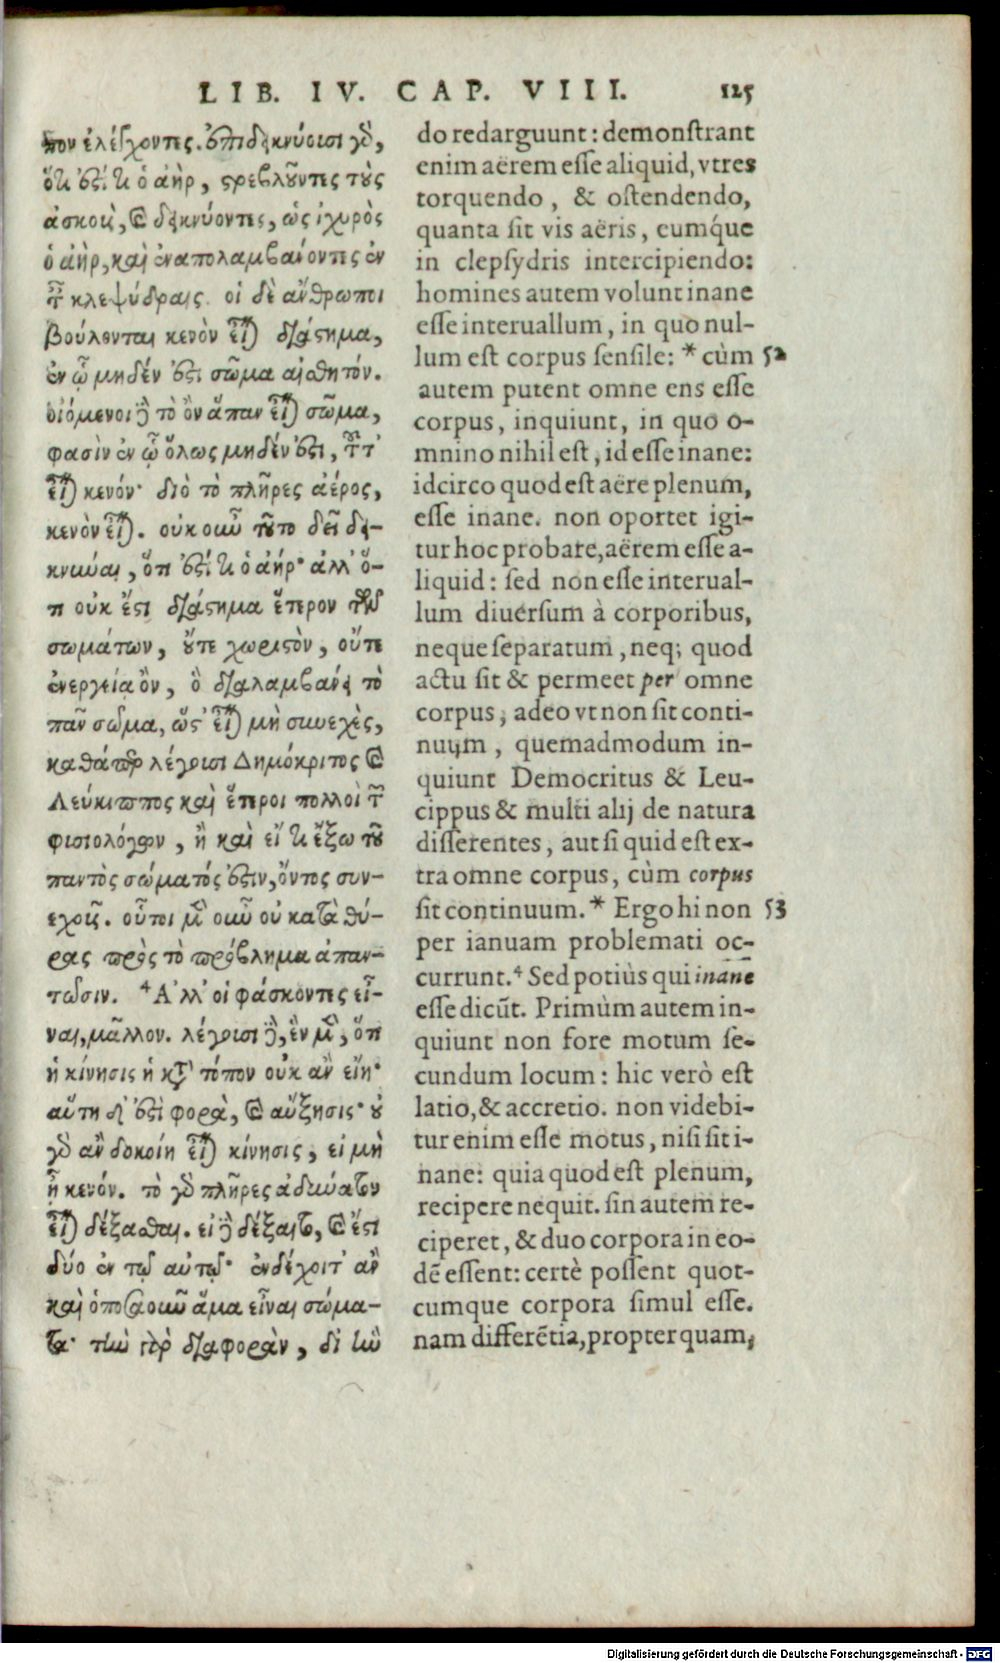 LIB. IV. CAP. VIII. 125
πον ἐλέγχοντες. ἐπιδεικνύουσι γὸ,
ὅτι ἐστί τι ὁ ἀὴρ, στρεβλοῦντες τοὺς
ἀσκοὺς, καὶ δεικνύοντες, ὡς ἰσχυρὸς
ὁ ἀὴρ, καὶ ἐναπολαμβάνοντες ἐν
ταῖς κλεψύδραις. οἱ δὲ ἄνθρωποι
βούλονται κενὸν εἶναι διάστημα,
ἐν ᾧ μηδέν ἐστι σῶμα αἰσθητόν.
οἰόμενοι δὲ τὸ ὂν ἅπαν εἶναι σῶμα,
φασὶν ἐν ᾧ ὅλως μηδέν ἐστι, τοῦτ'
εἶναι κενόν· διὸ τὸ πλῆρες ἀέρος,
κενὸν εἶναι. οὐκοῦν τοῦτο δεῖ δει-
κνύναι, ὅτι ἐστί τι ὁ ἀήρ· ἀλλ' ὅ-
τι οὐκ ἔστι διάστημα ἕτερον τῶν
σωμάτων, οὔτε χωριστὸν, οὔτε
ἐνεργείᾳ ὂν, ὃ διαλαμβάνει τὸ
πᾶν σῶμα, ὥστ' εἶναι μὴ συνεχὲς,
καθάπερ λέγουσι Δημόκριτος καὶ
Λεύκιππος καὶ ἕτεροι πολλοὶ τῶν
φυσιολόγων, ἢ καὶ εἴ τι ἔξω τοῦ
παντὸς σώματός ἐστιν, ὄντος συν-
εχοῦς. οὗτοι μὲν οὖν οὐ κατὰ θύ-
ρας πρὸς τὸ πρόβλημα ἀπαν-
τῶσιν. ⁴ Ἀλλ' οἱ φάσκοντες εἶ-
ναι, μᾶλλον. λέγουσι δὲ, ἓν μὲν, ὅτι
ἡ κίνησις ἡ κατὰ τόπον οὐκ ἂν εἴη·
αὕτη δ' ἐστὶ φορὰ, καὶ αὔξησις· οὐ
γὸ ἂν δοκοίη εἶναι κίνησις, εἰ μὴ
ᾖ κενόν. τὸ γὸ πλῆρες ἀδύνατον
εἶναι δέξασθαι. εἰ δὲ δέξαιτο, καὶ ἔσται
δύο ἐν τῷ αὐτῷ· ἐνδέχοιτ' ἂν
καὶ ὁποσαοῦν ἅμα εἶναι σώμα-
τα· τὴν γὰρ διαφορὰν, δι' ἣν
do redarguunt: demonſtrant
enim aërem eſſe aliquid, vtres
torquendo, & oſtendendo,
quanta ſit vis aëris, eumq́ue
in clepſydris intercipiendo:
homines autem volunt inane
eſſe interuallum, in quo nul-
lum eſt corpus ſenſile: * cùm 52
autem putent omne ens eſſe
corpus, inquiunt, in quo o-
mnino nihil eſt, id eſſe inane:
idcirco quod eſt aëre plenum,
eſſe inane. non oportet igi-
tur hoc probare, aërem eſſe a-
liquid: ſed non eſſe interual-
lum diuerſum à corporibus,
neque ſeparatum, neq; quod
actu ſit & permeet per omne
corpus, adeo vt non ſit conti-
nuum, quemadmodum in-
quiunt Democritus & Leu-
cippus & multi alij de natura
diſſerentes, aut ſi quid eſt ex-
tra omne corpus, cùm corpus
ſit continuum. * Ergo hi non 53
per ianuam problemati oc-
currunt.⁴ Sed potiùs qui inane
eſſe dicũt. Primùm autem in-
quiunt non fore motum ſe-
cundum locum: hic verò eſt
latio, & accretio. non videbi-
tur enim eſſe motus, niſi ſit i-
nane: quia quod eſt plenum,
recipere nequit. ſin autem re-
ciperet, & duo corpora in eo-
dē eſſent: certè poſſent quot-
cumque corpora ſimul eſſe.
nam differētia, propter quam,
Digitalisierung gefördert durch die Deutsche Forschungsgemeinschaft - DFG